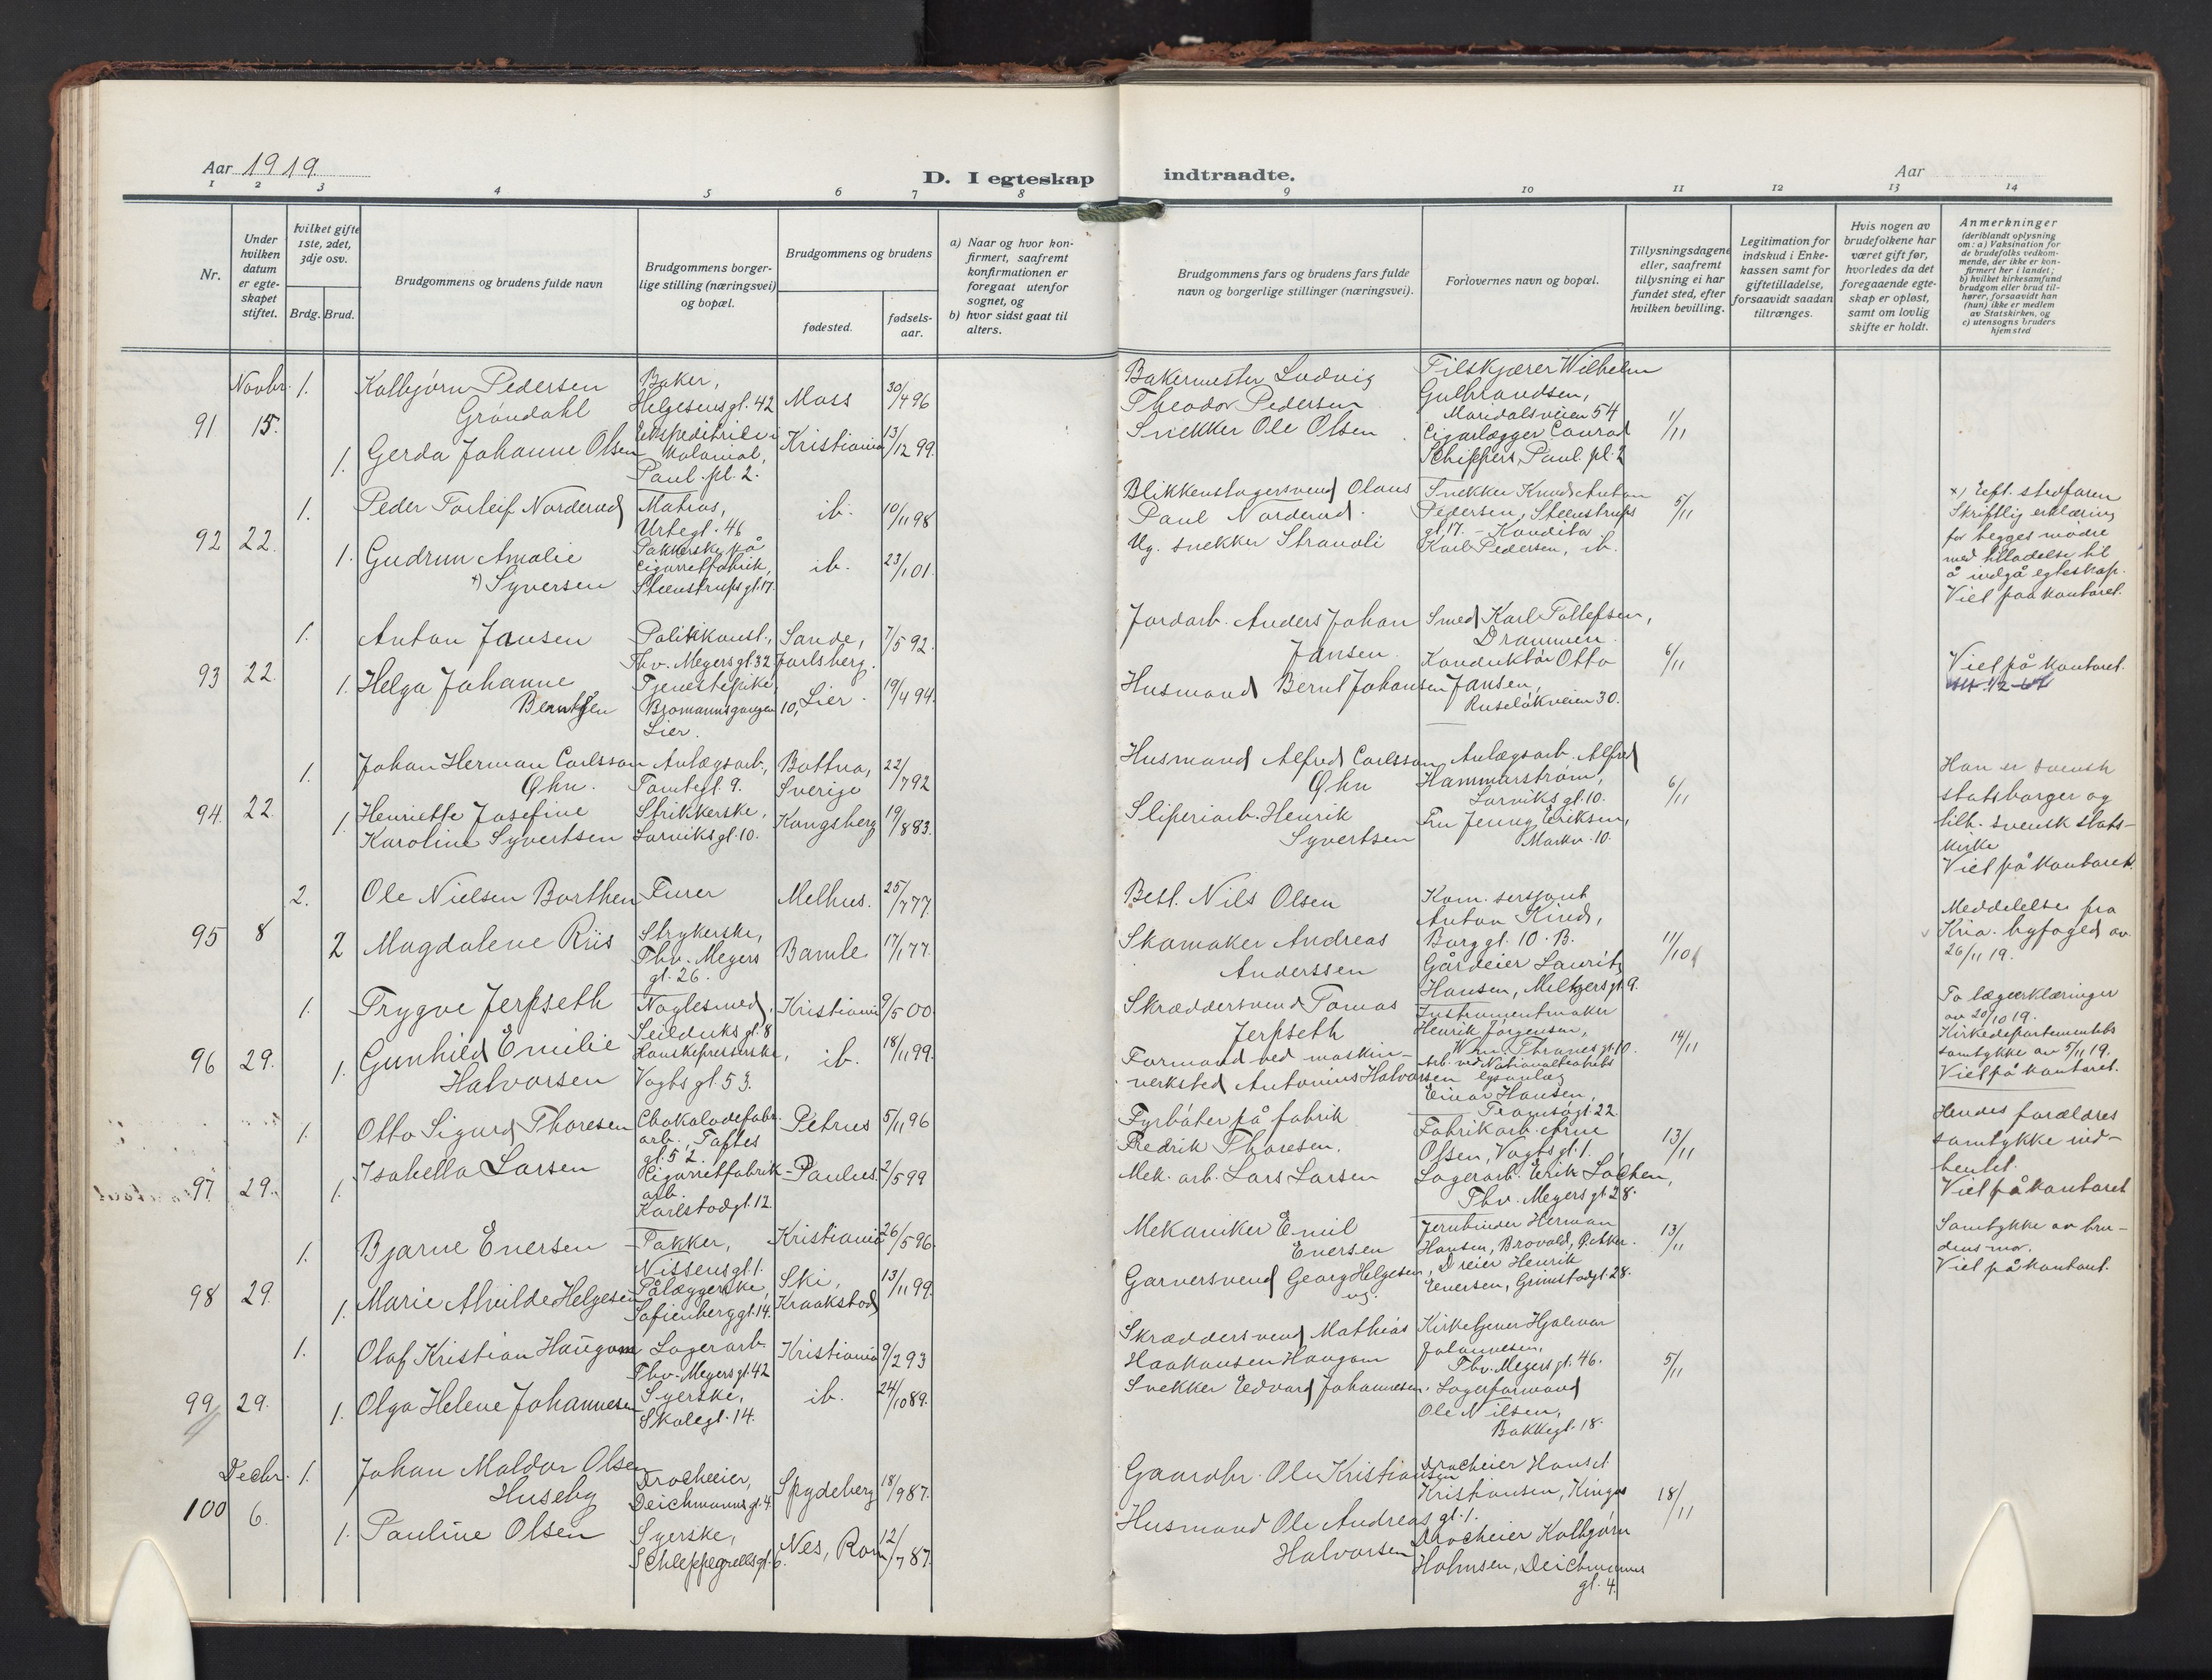 Aar 1919
D. I egteskap
indtraadte.
Aar
1 2 3 4 5 6 7 8 9 10 11 12 13 14
Nr.
Under hvilken datum er egteskapet stiftet.
hvilket gifte 1ste, 2det, 3dje osv.
Brdg. Brud.
Brudgommens og brudens fulde navn
Brudgommens borgerlige stilling (næringsvei) og bopæl.
Brudgommens og brudens
fødested.
fødselsaar.
a) Naar og hvor konfirmert, saafremt konfirmationen er foregaat utenfor sognet, og
b) hvor sidst gaat til alters.
Brudgommens fars og brudens fars fulde navn og borgerlige stillinger (næringsvei).
Forlovernes navn og bopæl.
Tillysningsdagene eller, saafremt tillysning ei har fundet sted, efter hvilken bevilling.
Legitimation for indskud i Enkekassen samt for giftetilladelse, forsaavidt saadan tiltrænges.
Hvis nogen av brudefolkene har været gift før, hvorledes da det foregaaende egteskap er opløst, samt om lovlig skifte er holdt.
Anmerkninger
(deriblandt oplysning om: a) Vaksination for de brudefolks vedkommende, der ikke er konfirmert her i landet;
b) hvilket kirkesamfund brudgom eller brud tilhører, forsaavidt han (hun) ikke er medlem av Statskirken, og
c) utensogns bruders hjemsted
91 Novbr. 15.
1. Kolbjørn Pedersen
Grøndahl
Baker,
Helgesens gt. 42
Moss
30/4 96
Bakermester Ludvig
Theodor Pedersen
Filskjærer Wilhelm
Gulbrandsen,
Maridalsveien 54
1/11
1. Gerda Johanne Olsen
Ekspeditrice i
kolonial,
Paul. pl. 2.
Kristiania
13/12 99.
Snekker Ole Olsen
Cigarlægger Conrad
Schippers, Paul. pl. 2
92 22.
1. Peder Torleif Norderud
Matros,
Urtegt. 46
ib.
10/11 98
Blikkenslagersvend Olaus
Paul Norderud.
Snekker Knud Anton
Pedersen, Steenstrups
gt. 17. - Konditor
Karl Pedersen, ib.
5/11
1. Gudrun Amalie
x) Syversen
Pakkerske på
cigaretfabrik,
Steenstrups gt. 17.
ib.
23/1 01.
Ug. snekker Stranoli
x) Eeft. stedfaren
Skriftlig erklæring
for begges mødre
med tilladelse til
å indgå egteskap.
Viet paa kontoret.
93 22.
1. Anton Jansen
Politikonst.,
Thv. Meyers gt. 32
Sande,
Jarlsberg.
7/5 92.
Jordarb. Anders Johan
Jansen.
Smed Karl Tollefsen,
Drammen.
Konduktør Otto
Jansen,
Ruseløkveien 30.
6/11
1. Helga Johanne
Berntsen
Tjenestepike,
Bromannsgangen 10,
Lier.
Lier.
19/4 94.
Husmand Bernt Johansen
Viet på kontoret.
94. 22.
1. Johan Herman Carlsson
Øhn.
Anlægsarb.,
Tomtegt. 9.
Bottna,
Sverige
22/7 92
Husmand Alfred Carlsson
Øhn
Anlægsarb. Alfred
Hammarstrøm,
Larviks gt. 10.
6/11
1. Henriette Josefine
Karoline Syvertsen
Strikkerske,
Larviks gt. 10.
Kongsberg
19/8 83.
Sliperiarb. Henrik
Syvertsen
Fru Jenny Eriksen,
Markv. 10.
Han er svensk
statsborger og
tilh. svensk stats-
kirke
Viet på kontoret.
95 8
2. Ole Nielsen Borthen
Furer
Melhus.
25/7 77.
Best. Nils Olsen
Kom. sersjant
Anton Kind,
Borg gt. 10. B.
11/10
2 Magdalene Riis
Strykerske,
Thv. Meyers
gt. 26.
Bamle
17/1 77.
Skomaker Andreas
Anderssen
Gårdeier Lauritz
Hansen, Meltzers gt. 9.
Meddelelse fra
Kria. byfoged av
26/11 19.
96 29.
1. Trygve Jerpseth
Naglesmed,
Seilduks gt. 8
Kristiania
9/5 00.
Skræddersvend Tomas
Jerpseth
Instrumentmaker
Henrik Jørgensen,
Wm. Thranes gt. 10.
14/11
1. Gunhild Emilie
Halvorsen
Hanskepresserske,
Vogts gt. 53.
ib.
18/11 99.
Formand ved maskin-
verksted Antonius Halvorsen
Arb. ved Nationalteatrets
lysanlæg
Einar Hansen,
Tromsøgt. 22.
To lægeerklæringer
av 20/10 19.
Kirkedepartementets
samtykke av 5/11 19.
Viet på kontoret.
97 29.
1. Otto Sigurd Thoresen
Chokoladefabr.
arb., Toftes
gt. 52.
Petrus
5/11 96
Fyrbøter på fabrik
Fredrik Thoresen.
Fabrikarb. Arne
Olsen, Vogts gt. 1.
13/11
1. Isabella Larsen
Cigarretfabrik-
arb.
Karlstadgt. 12.
Paulus.
2/5 99
Mek. arb. Lars Larsen
Lagerarb. Erik Lochen,
Thv. Meyers gt. 28.
Hendes forældres
samtykke ind-
hentet.
Viet på kontoret
98 29.
1. Bjarne Enersen
Pakker,
Nissens gt. 1.
Kristiania
26/5 96.
Mekaniker Emil
Enersen
Jernbinder Herman
Hansen, Brovold, Ø. Aker.
13/11
1. Marie Alvilde Helgesen
Pålæggerske,
Sofienberggt. 14.
Ski,
Kraakstad
13/11 99.
Garversvend Georg Helgesen,
ug.
Dreier Henrik
Enersen, Grimstadgt. 28.
Samtykke av bru-
dens mor.
Viet på kontoret.
99 29.
1. Olaf Kristian Haugom
Lagerarb.
Thv. Meyers gt. 42
Kristiania
9/2 93
Skræddersvend Mathias
Haakonsen Haugom
Kirketjener Hjalmar
Johannesen,
Thv. Meyers gt. 46.
5/11
1. Olga Helene Johannesen
Syerske,
Skolegt. 14.
ib.
24/10 89.
Snekker Edvard Johannesen.
Lagerformand
Ole Nilsen,
Bakkegt. 18.
100 Decbr. 6.
1. Johan Maldor Olsen
Huseby
Drocheeier,
Deichmanns gt. 4.
Spydeberg
18/9 87.
Gaardbr. Ole Kristiansen
Drocheier Hans A.
Kristiansen, Kingos
gt. 1.
18/11
1. Pauline Olsen
Syerske,
Schleppegrells gt. 6.
Nes, Rom.
12/7 87.
Husmand Ole Andreas
Halvorsen
Drocheier Kolbjørn
Holmsen, Deichmanns
gt. 4.